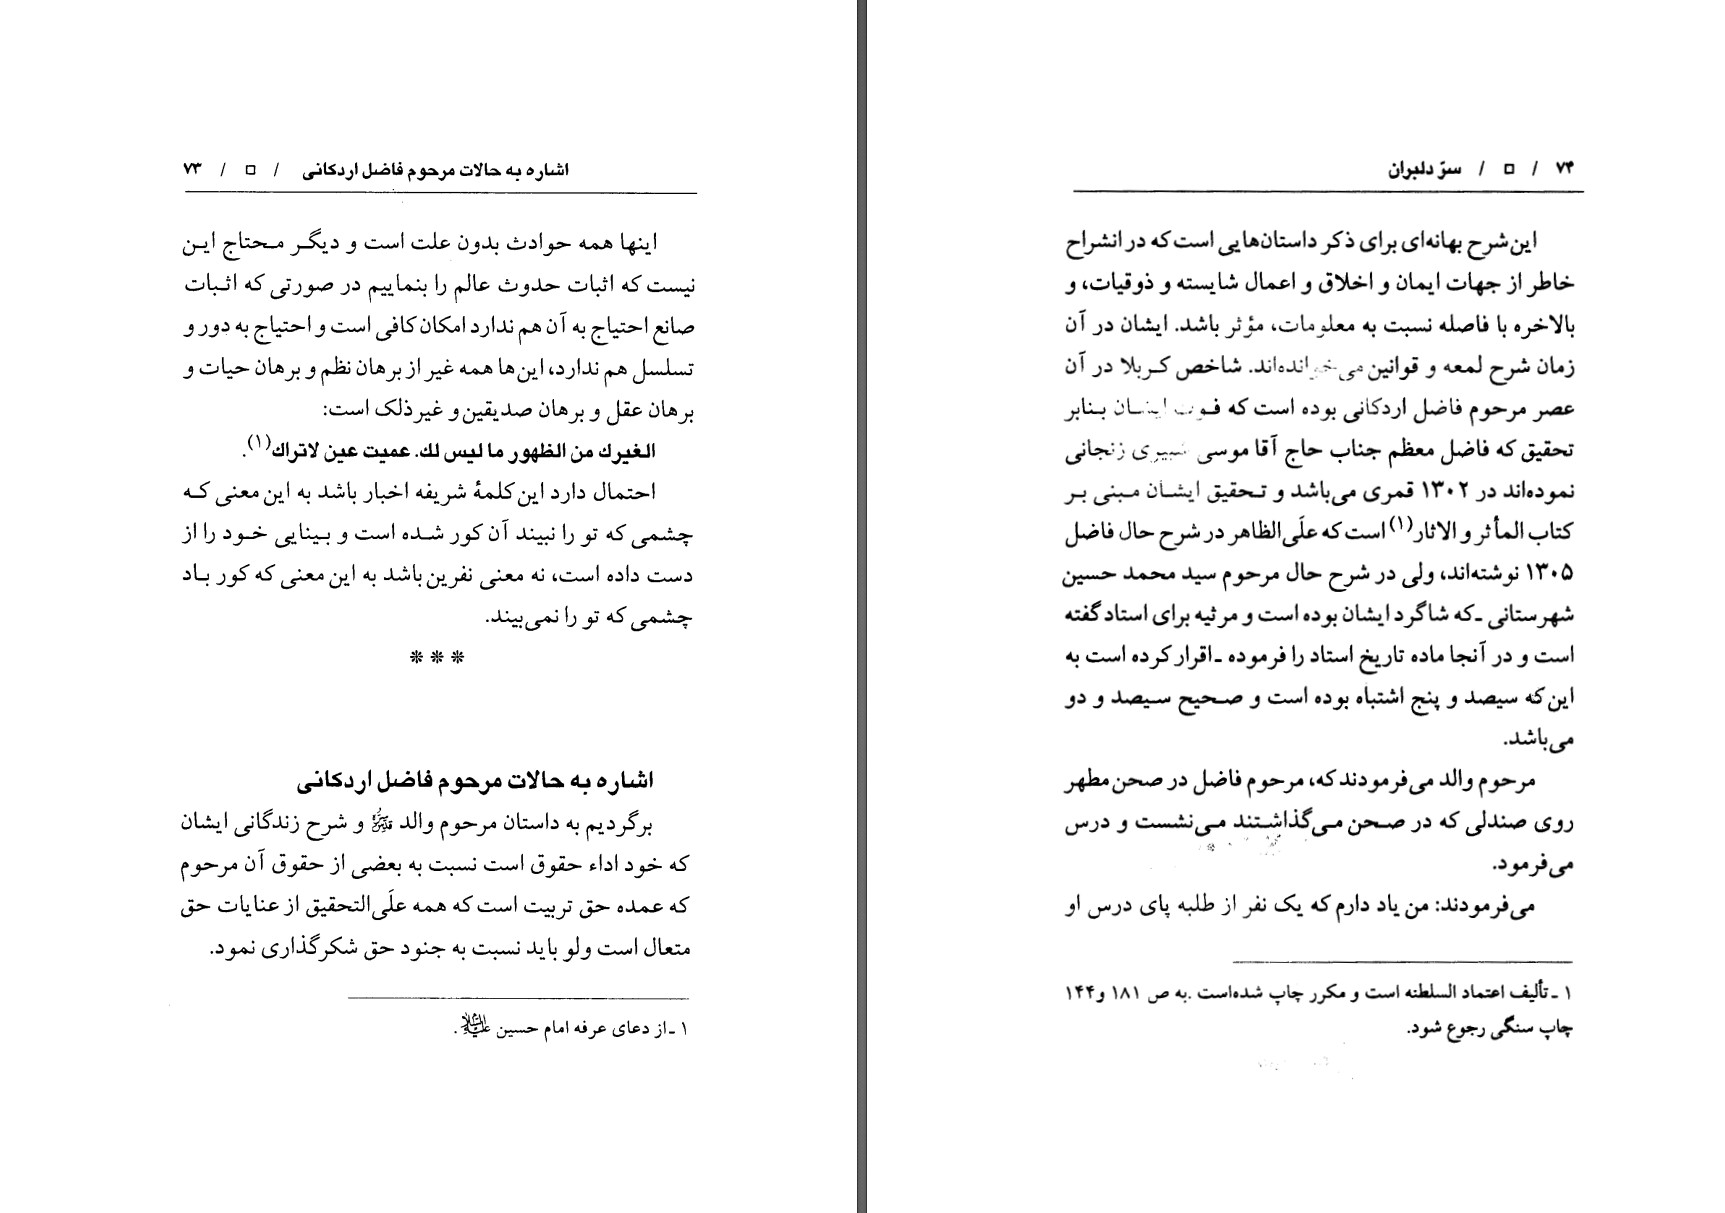 اشاره به حالات مرحوم فاضل اردکانی / □ / ۷۳
اینها همه حوادث بدون علت است و دیگر محتاج این
نیست که اثبات حدوث عالم را بنماییم در صورتی که اثبات
صانع احتیاج به آن هم ندارد امکان کافی است و احتیاج به دور و
تسلسل هم ندارد، این‌ها همه غیر از برهان نظم و برهان حیات و
برهان عقل و برهان صدیقین و غیرذلک است:
الغیرك من الظهور ما لیس لك. عمیت عین لاتراك(۱).
احتمال دارد این کلمهٔ شریفه اخبار باشد به این معنی که
چشمی که تو را نبیند آن کور شده است و بینایی خود را از
دست داده است، نه معنی نفرین باشد به این معنی که کور باد
چشمی که تو را نمی‌بیند.
* * *
اشاره به حالات مرحوم فاضل اردکانی
برگردیم به داستان مرحوم والد قدس‌سره و شرح زندگانی ایشان
که خود اداء حقوق است نسبت به بعضی از حقوق آن مرحوم
که عمده حق تربیت است که همه علَی‌التحقیق از عنایات حق
متعال است ولو باید نسبت به جنود حق شکرگذاری نمود.
۱ ـ از دعای عرفه امام حسین علیه‌السلام.
۷۴ / □ / سرّ دلبران
این شرح بهانه‌ای برای ذکر داستان‌هایی است که در انشراح
خاطر از جهات ایمان و اخلاق و اعمال شایسته و ذوقیات، و
بالاخره با فاصله نسبت به معلومات، مؤثر باشد. ایشان در آن
زمان شرح لمعه و قوانین می‌خوانده‌اند. شاخص کربلا در آن
عصر مرحوم فاضل اردکانی بوده است که فوت ایشان بنابر
تحقیق که فاضل معظم جناب حاج آقا موسی شبیری زنجانی
نموده‌اند در ۱۳۰۲ قمری می‌باشد و تحقیق ایشان مبنی بر
کتاب المأثر و الاثار(۱) است که علَی‌الظاهر در شرح حال فاضل
۱۳۰۵ نوشته‌اند، ولی در شرح حال مرحوم سید محمد حسین
شهرستانی ـ که شاگرد ایشان بوده است و مرثیه برای استاد گفته
است و در آنجا ماده تاریخ استاد را فرموده ـ اقرار کرده است به
این که سیصد و پنج اشتباه بوده است و صحیح سیصد و دو
می‌باشد.
مرحوم والد می‌فرمودند که، مرحوم فاضل در صحن مطهر
روی صندلی که در صحن می‌گذاشتند می‌نشست و درس
می‌فرمود.
می‌فرمودند: من یاد دارم که یک نفر از طلبه پای درس او
۱ ـ تألیف اعتماد السلطنه است و مکرر چاپ شده‌است .به ص ۱۸۱ و ۱۴۴
چاپ سنگی رجوع شود.